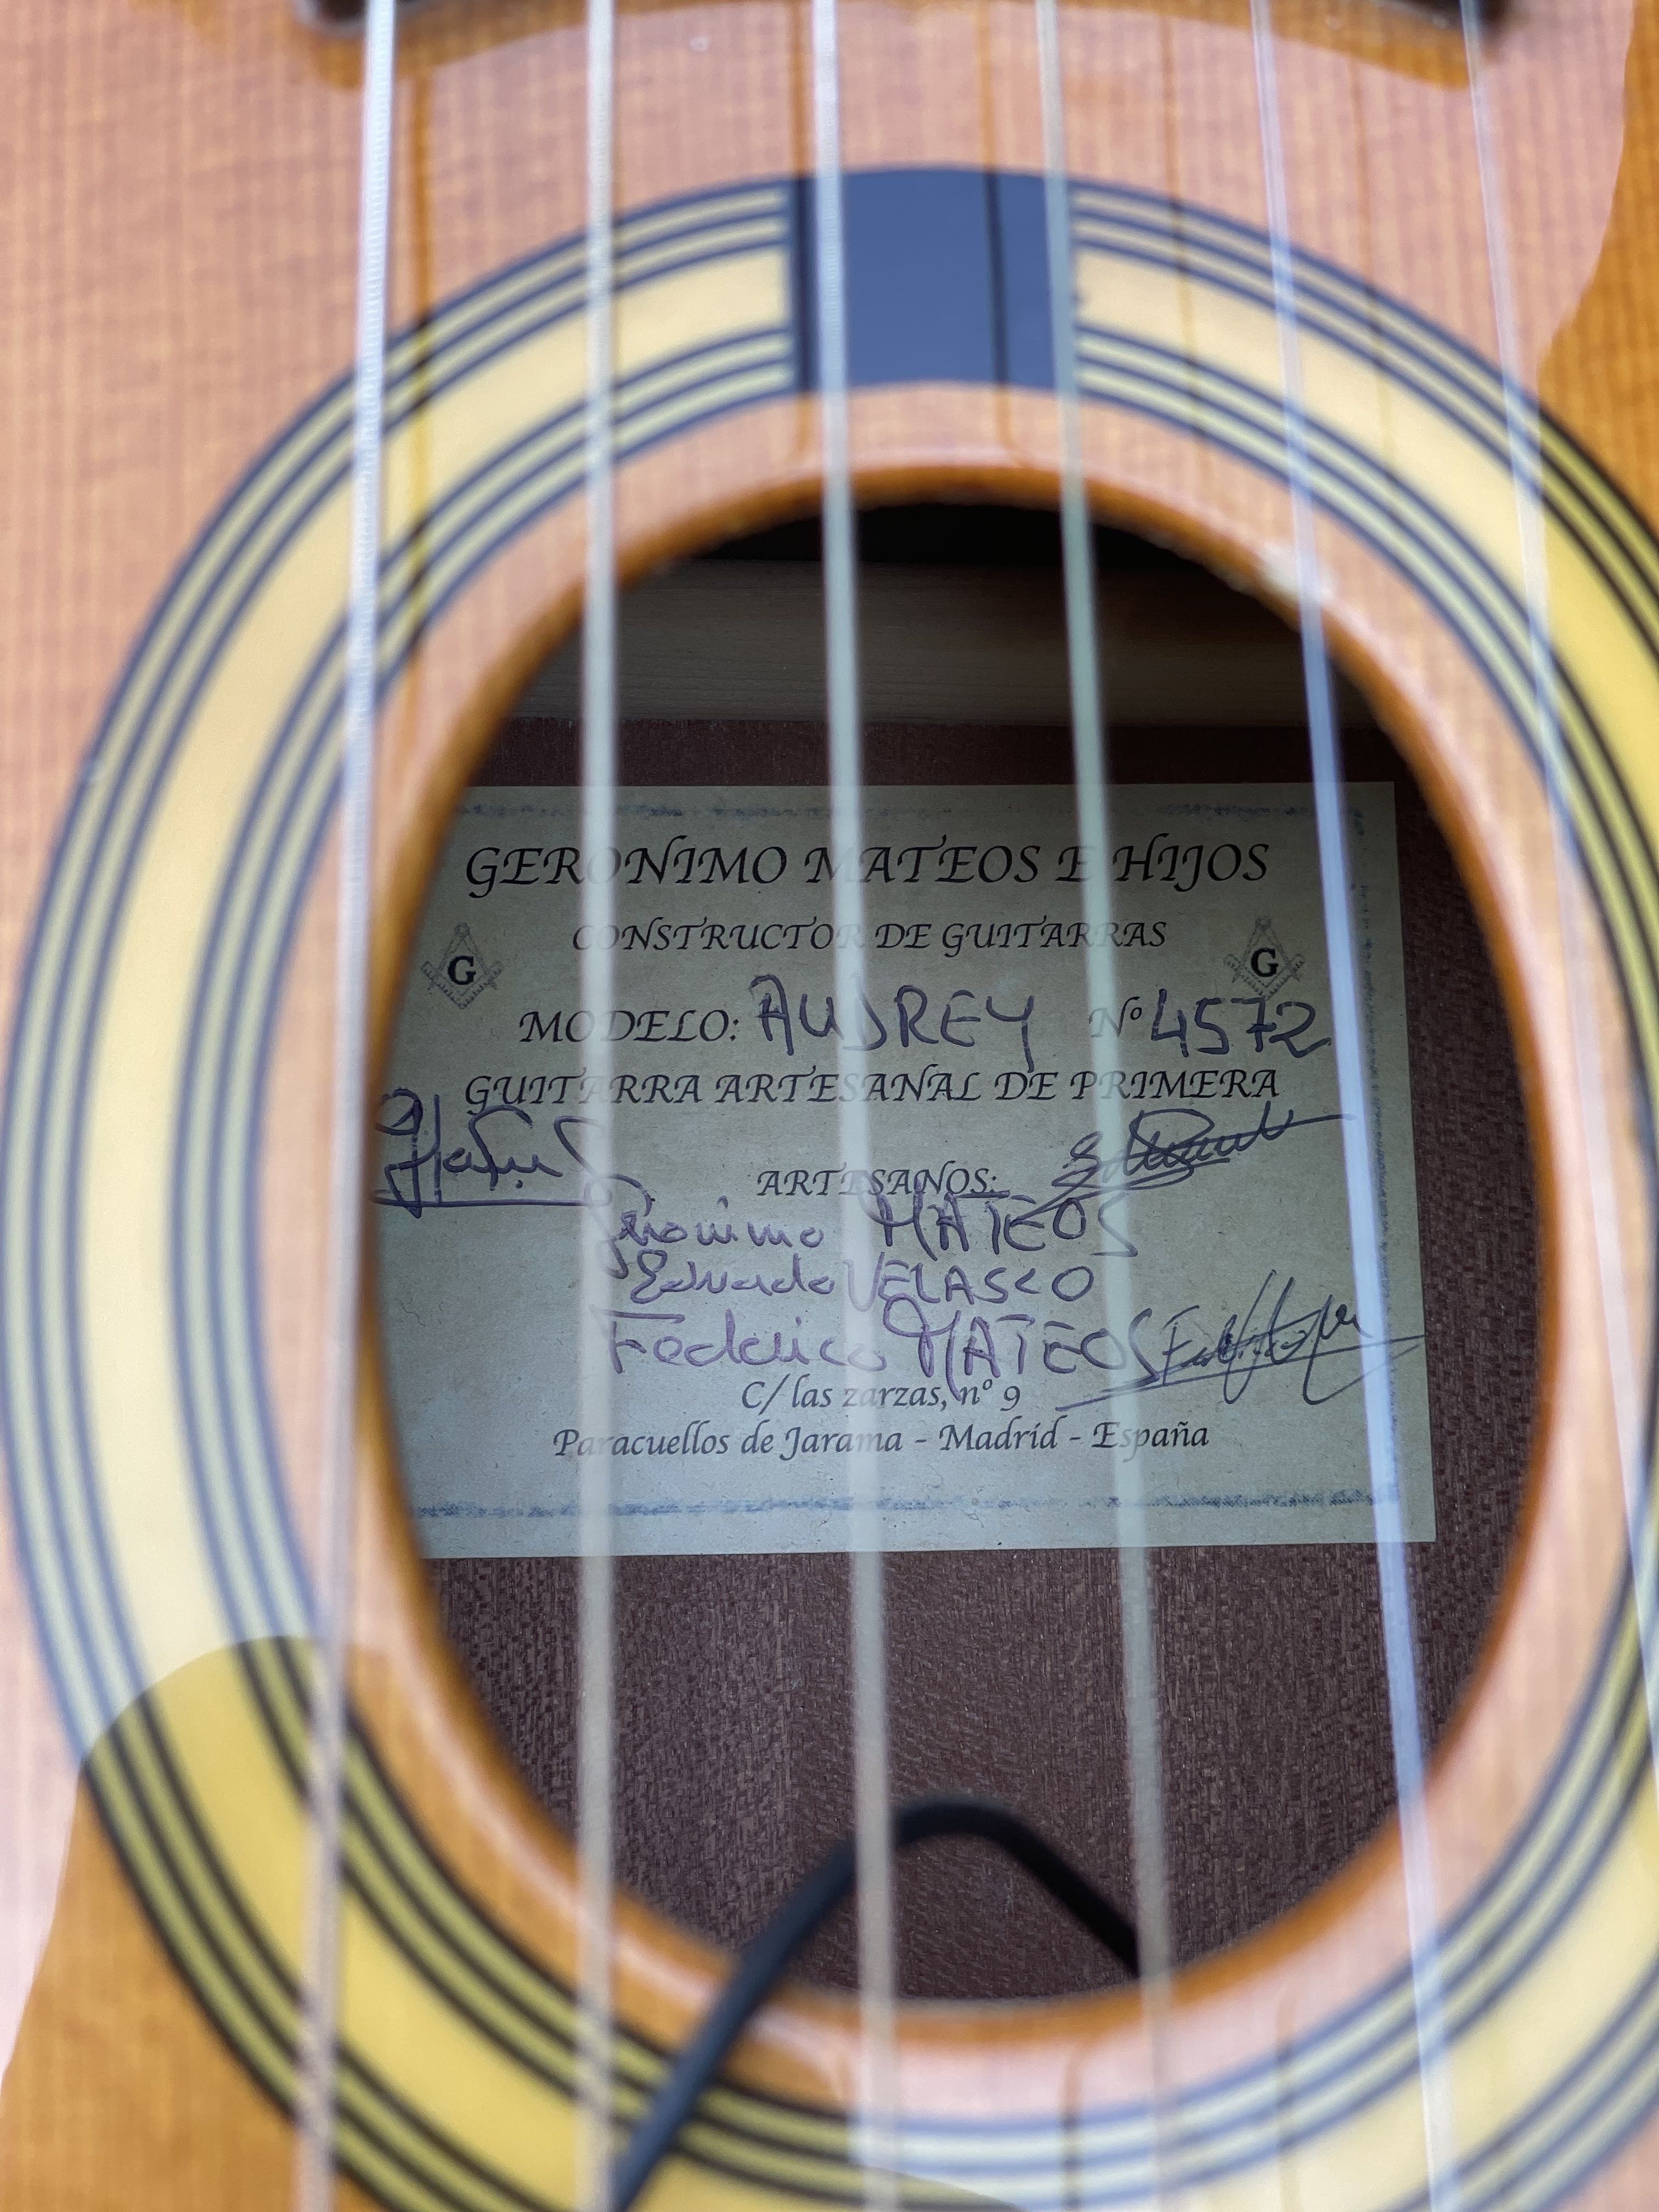 GERONIMO MATEOS E HIJOS
CONSTRUCTOR DE GUITARRAS
G G
MODELO: AUDREY Nº 4572
GUITARRA ARTESANAL DE PRIMERA
ARTESANOS:
Gerónimo MATEOS
Eduardo VELASCO
Federico MATEOS
C/ las zarzas, nº 9
Paracuellos de Jarama - Madrid - España